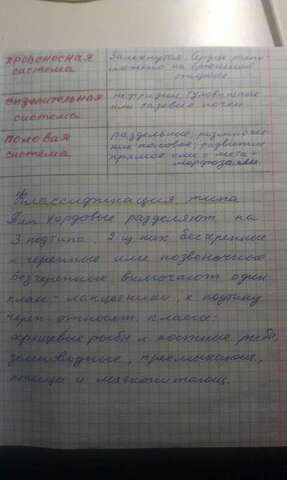 кровеносная система
Замкнутая. Сердце расположено на брюшной стороне
выделительная система
нефридии, туловищные или тазовые почки
половая система
раздельнополые, размножение половое, развитие прямое или с метаморфозами
Классификация типа
Тип хордовые разделяют на
3 подтипа. 2 из них бесчерепные
и черепные или позвоночные
Бесчерепные включают один
класс - ланцетники, к подтипу
череп. относят классы:
хрящевые рыбы и костные рыбы,
земноводные, пресмыкающ.,
птицы и млекопитающ.